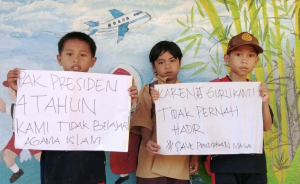 PAK PRESIDEN
4 TAHUN
KAMI TIDAK BELAJAR
AGAMA ISLAM
KARENA GURU KAMI
TIDAK PERNAH
HADIR
#SAVE PENDIDIKAN